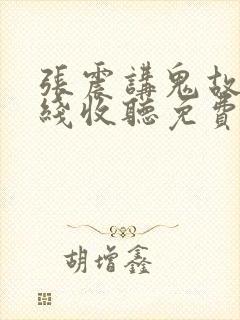 張震講鬼故
綫收聽免費
胡增鑫